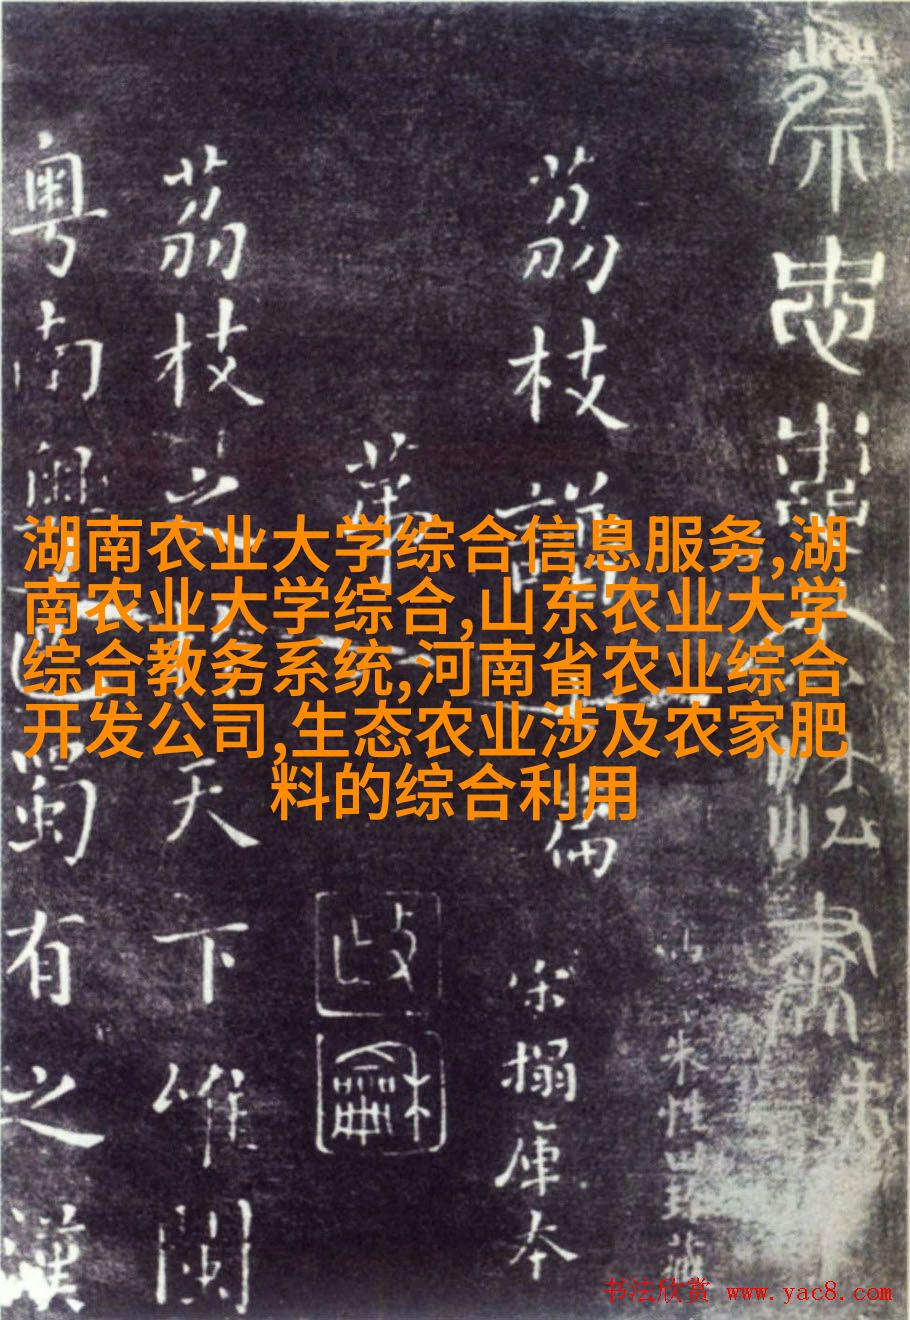 湖南农业大学综合信息服务,湖
南农业大学综合,山东农业大学
综合教务系统,河南省农业综合
开发公司,生态农业涉及农家肥
料的综合利用
蔡忠惠
荔枝譜
宋搨庫本
第一
荔枝之於天下唯閩
粤南粤巴蜀有之漢
书法欣赏 www.yac8.com